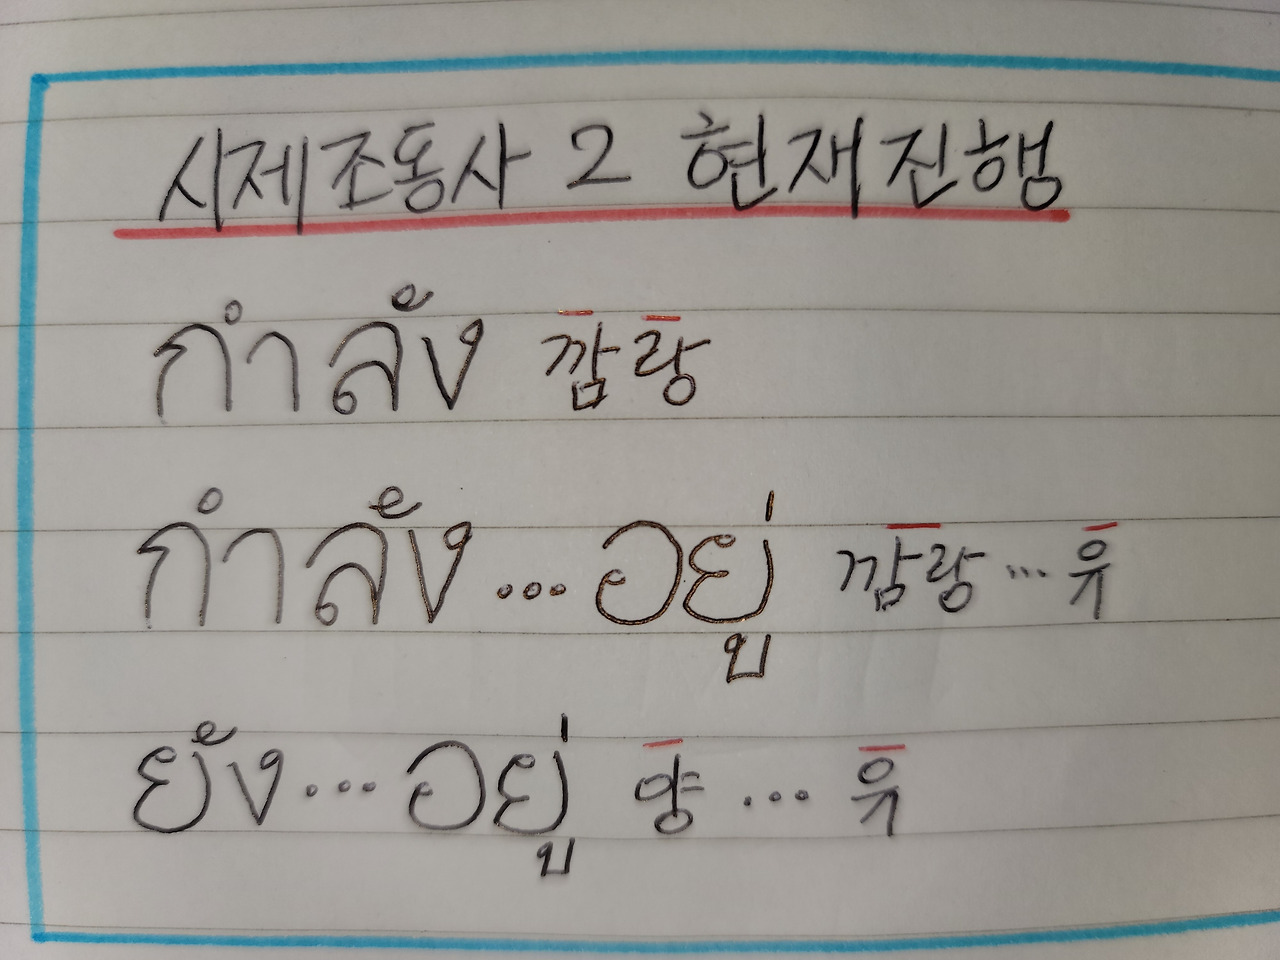 시제조동사 2 현재진행
กำลัง 깜랑
กำลัง...อยู่ 깜랑...유
ยัง...อยู่ 양...유